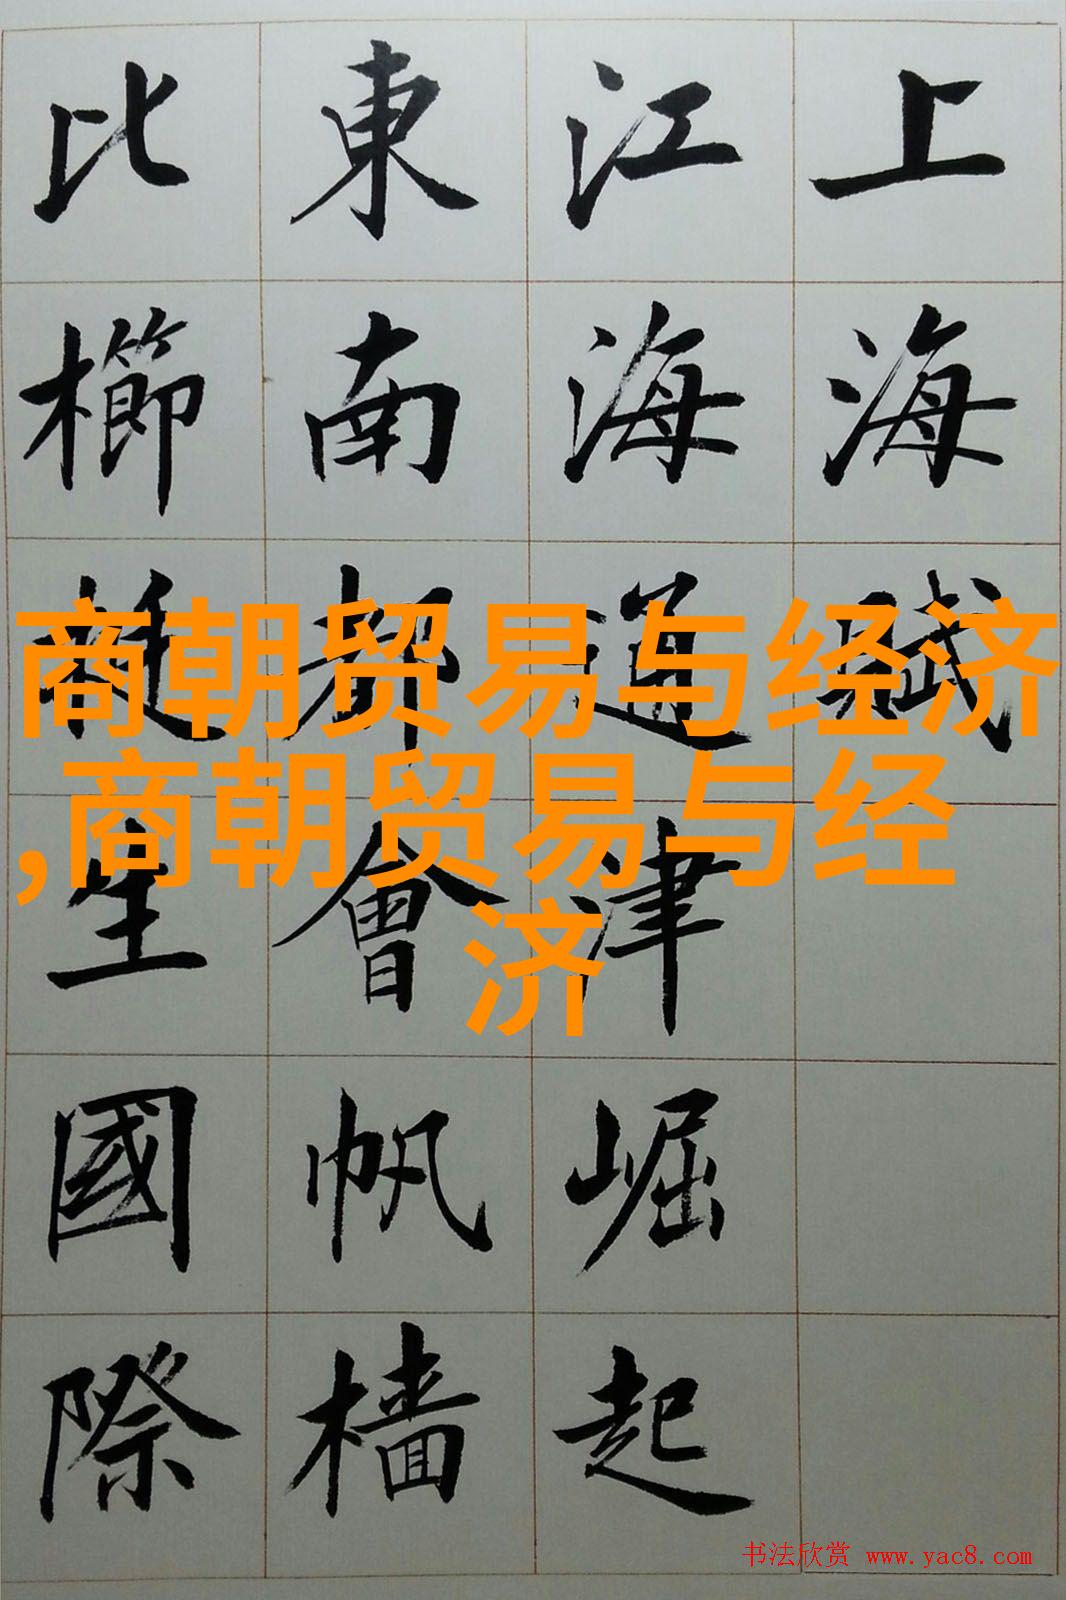 上海賦
江海通津崛起
東南都會帆檣
比櫛生國際
商朝贸易与经济
,商朝贸易与经
济
书法欣赏 www.yac8.com